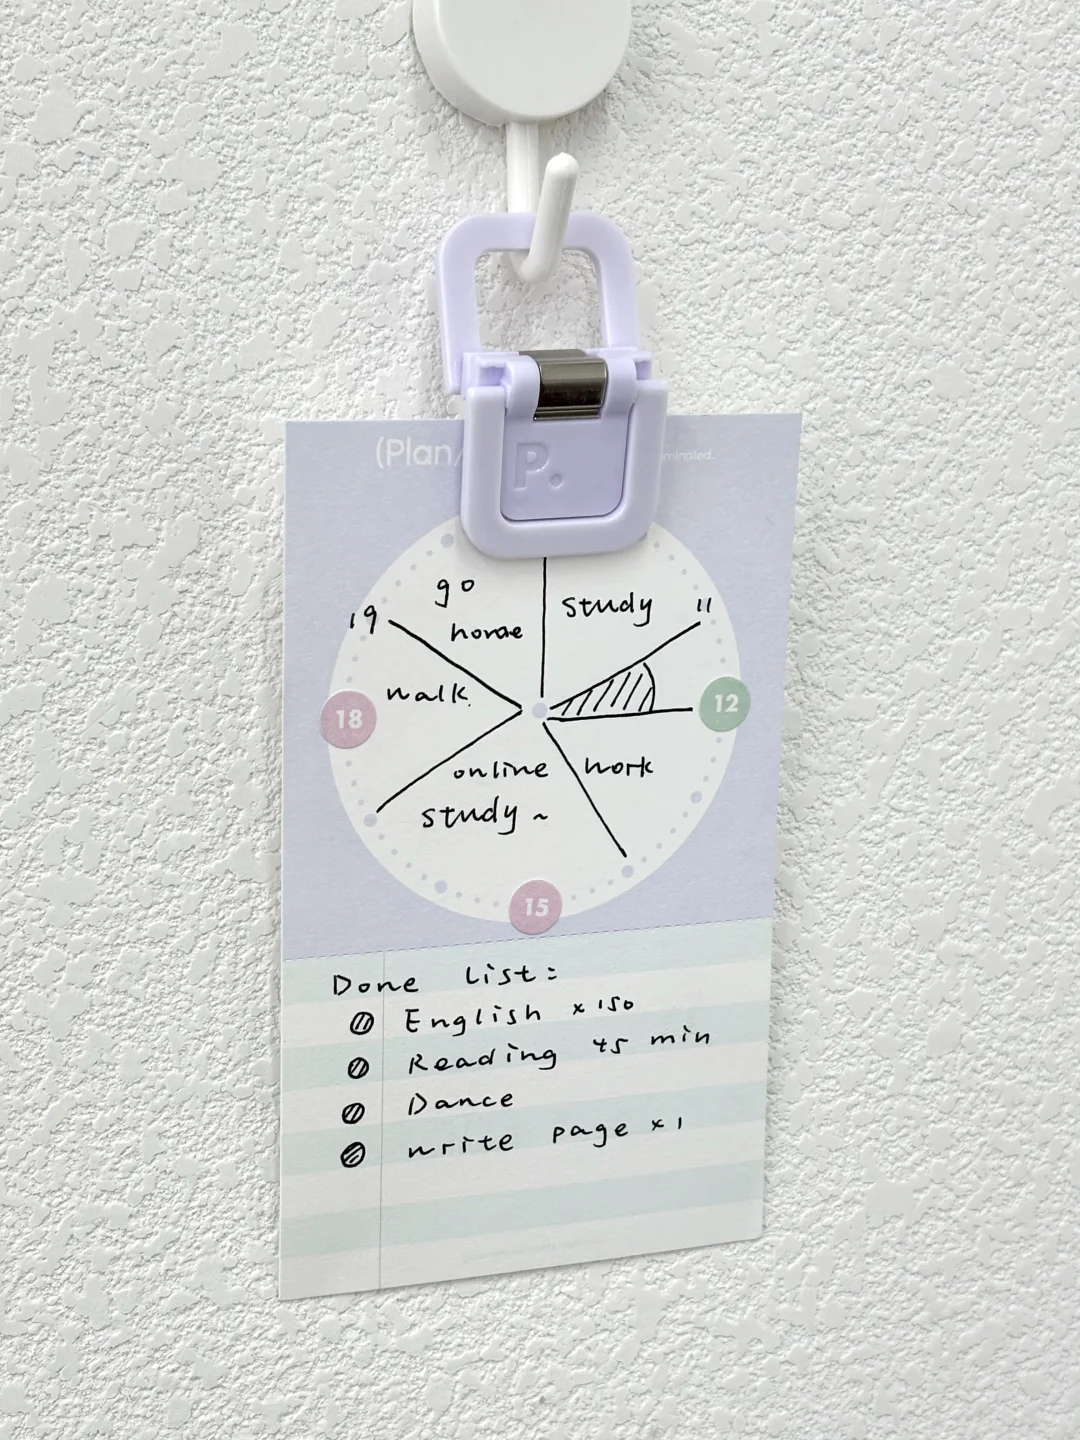 (Plan/
P.
minated.
go
home
study
11
19
walk
12
18
online
study ~
work
15
Done List:
English × 150
Reading 45 min
Dance
write page × 1